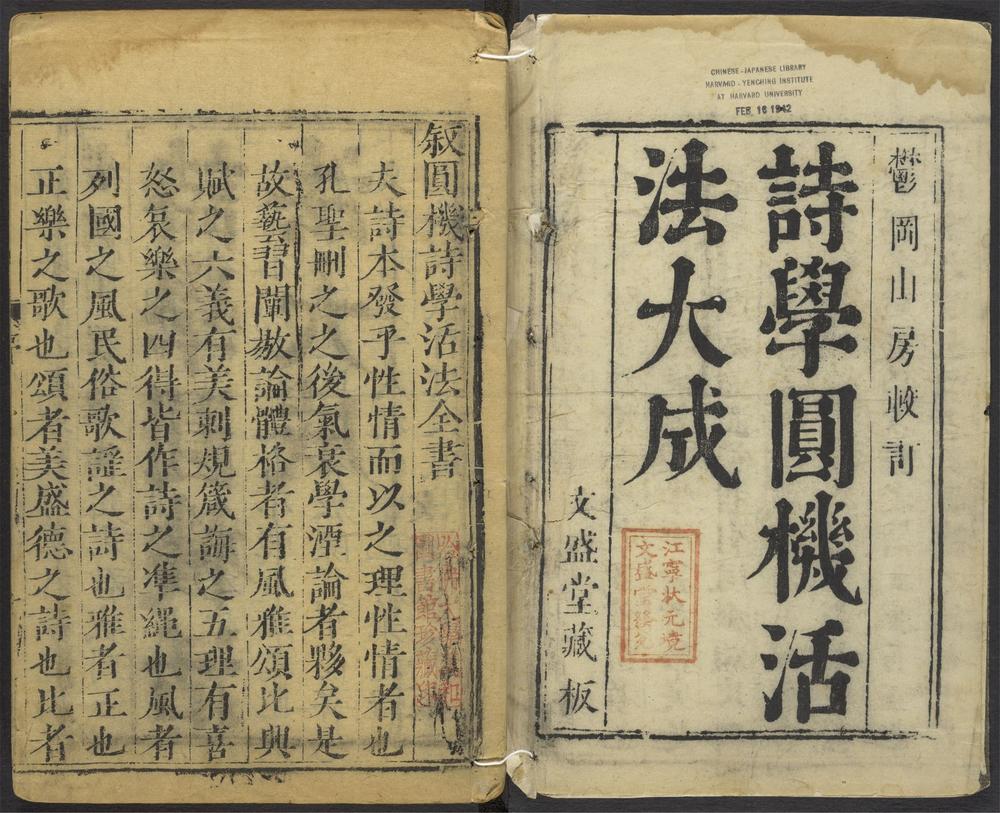 CHINESE-JAPANESE LIBRARY
HARVARD-YENCHING INSTITUTE
AT HARVARD UNIVERSITY
FEB 16 1942
鬱岡山房收訂
詩學圓機活
法大成
江寧狀元境
文盛堂
文盛堂藏板
叙圓機詩學活法全書
夫詩本發乎性情而以之理性情者也
孔聖刪之之後氣衰學湮論者夥矣是
故藝䛒闡敭論體格者有風雅頌比興
賦之六義有美刺規箴誨之五理有喜
怒哀樂之四得皆作詩之準繩也風者
列國之風民俗歌謡之詩也雅者正也
正樂之歌也頌者美盛德之詩也比者